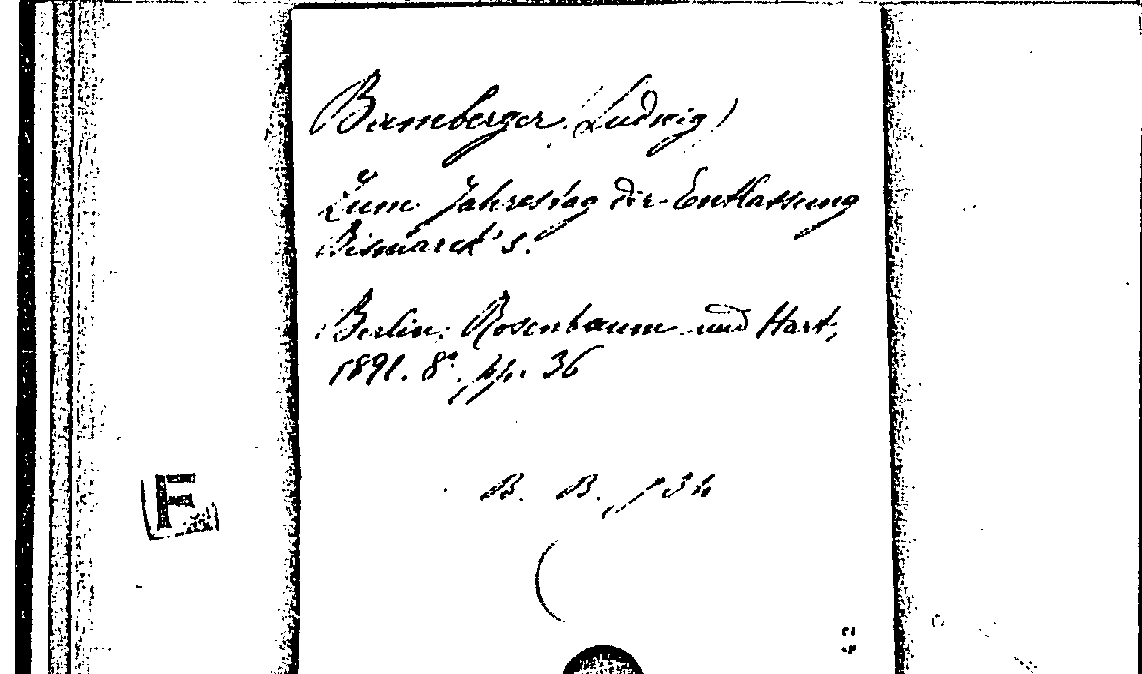 Bamberger (Ludwig)
Zum Jahrestag der Entlassung
Bismarck's.
Berlin: Rosenbaum und Hart,
1891. 8°. pp. 36
B. B.
F